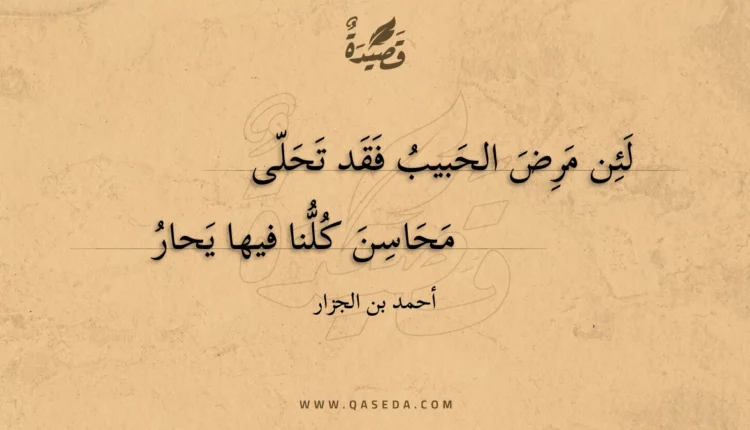 قَصِيْدَةٌ
لَئِن مَرِضَ الحَبيبُ فَقَد تَحَلّى
مَحَاسِنَ كُلُّنا فيها يَحارُ
أحمد بن الجزار
WWW.QASEDA.COM